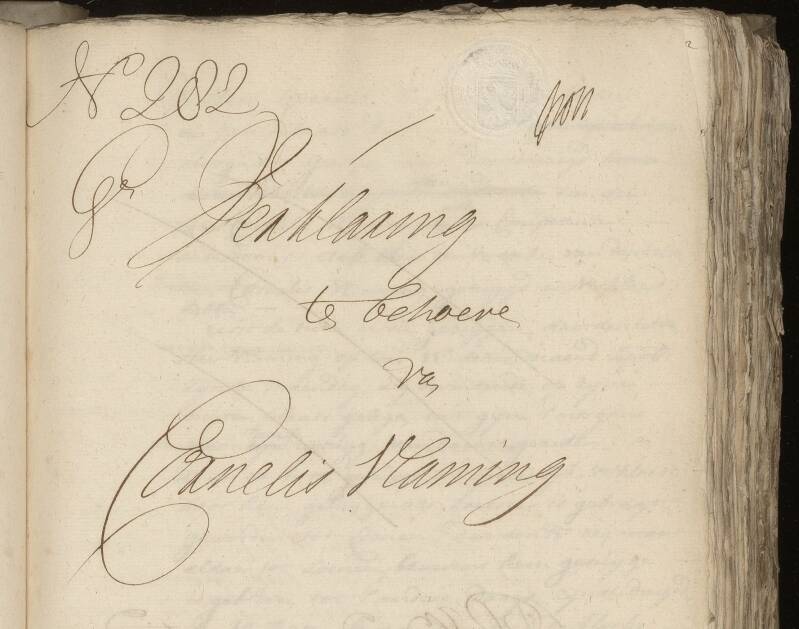 N 282
Gr Verklaring
te behoeve
va
Cornelis Vlaming
2